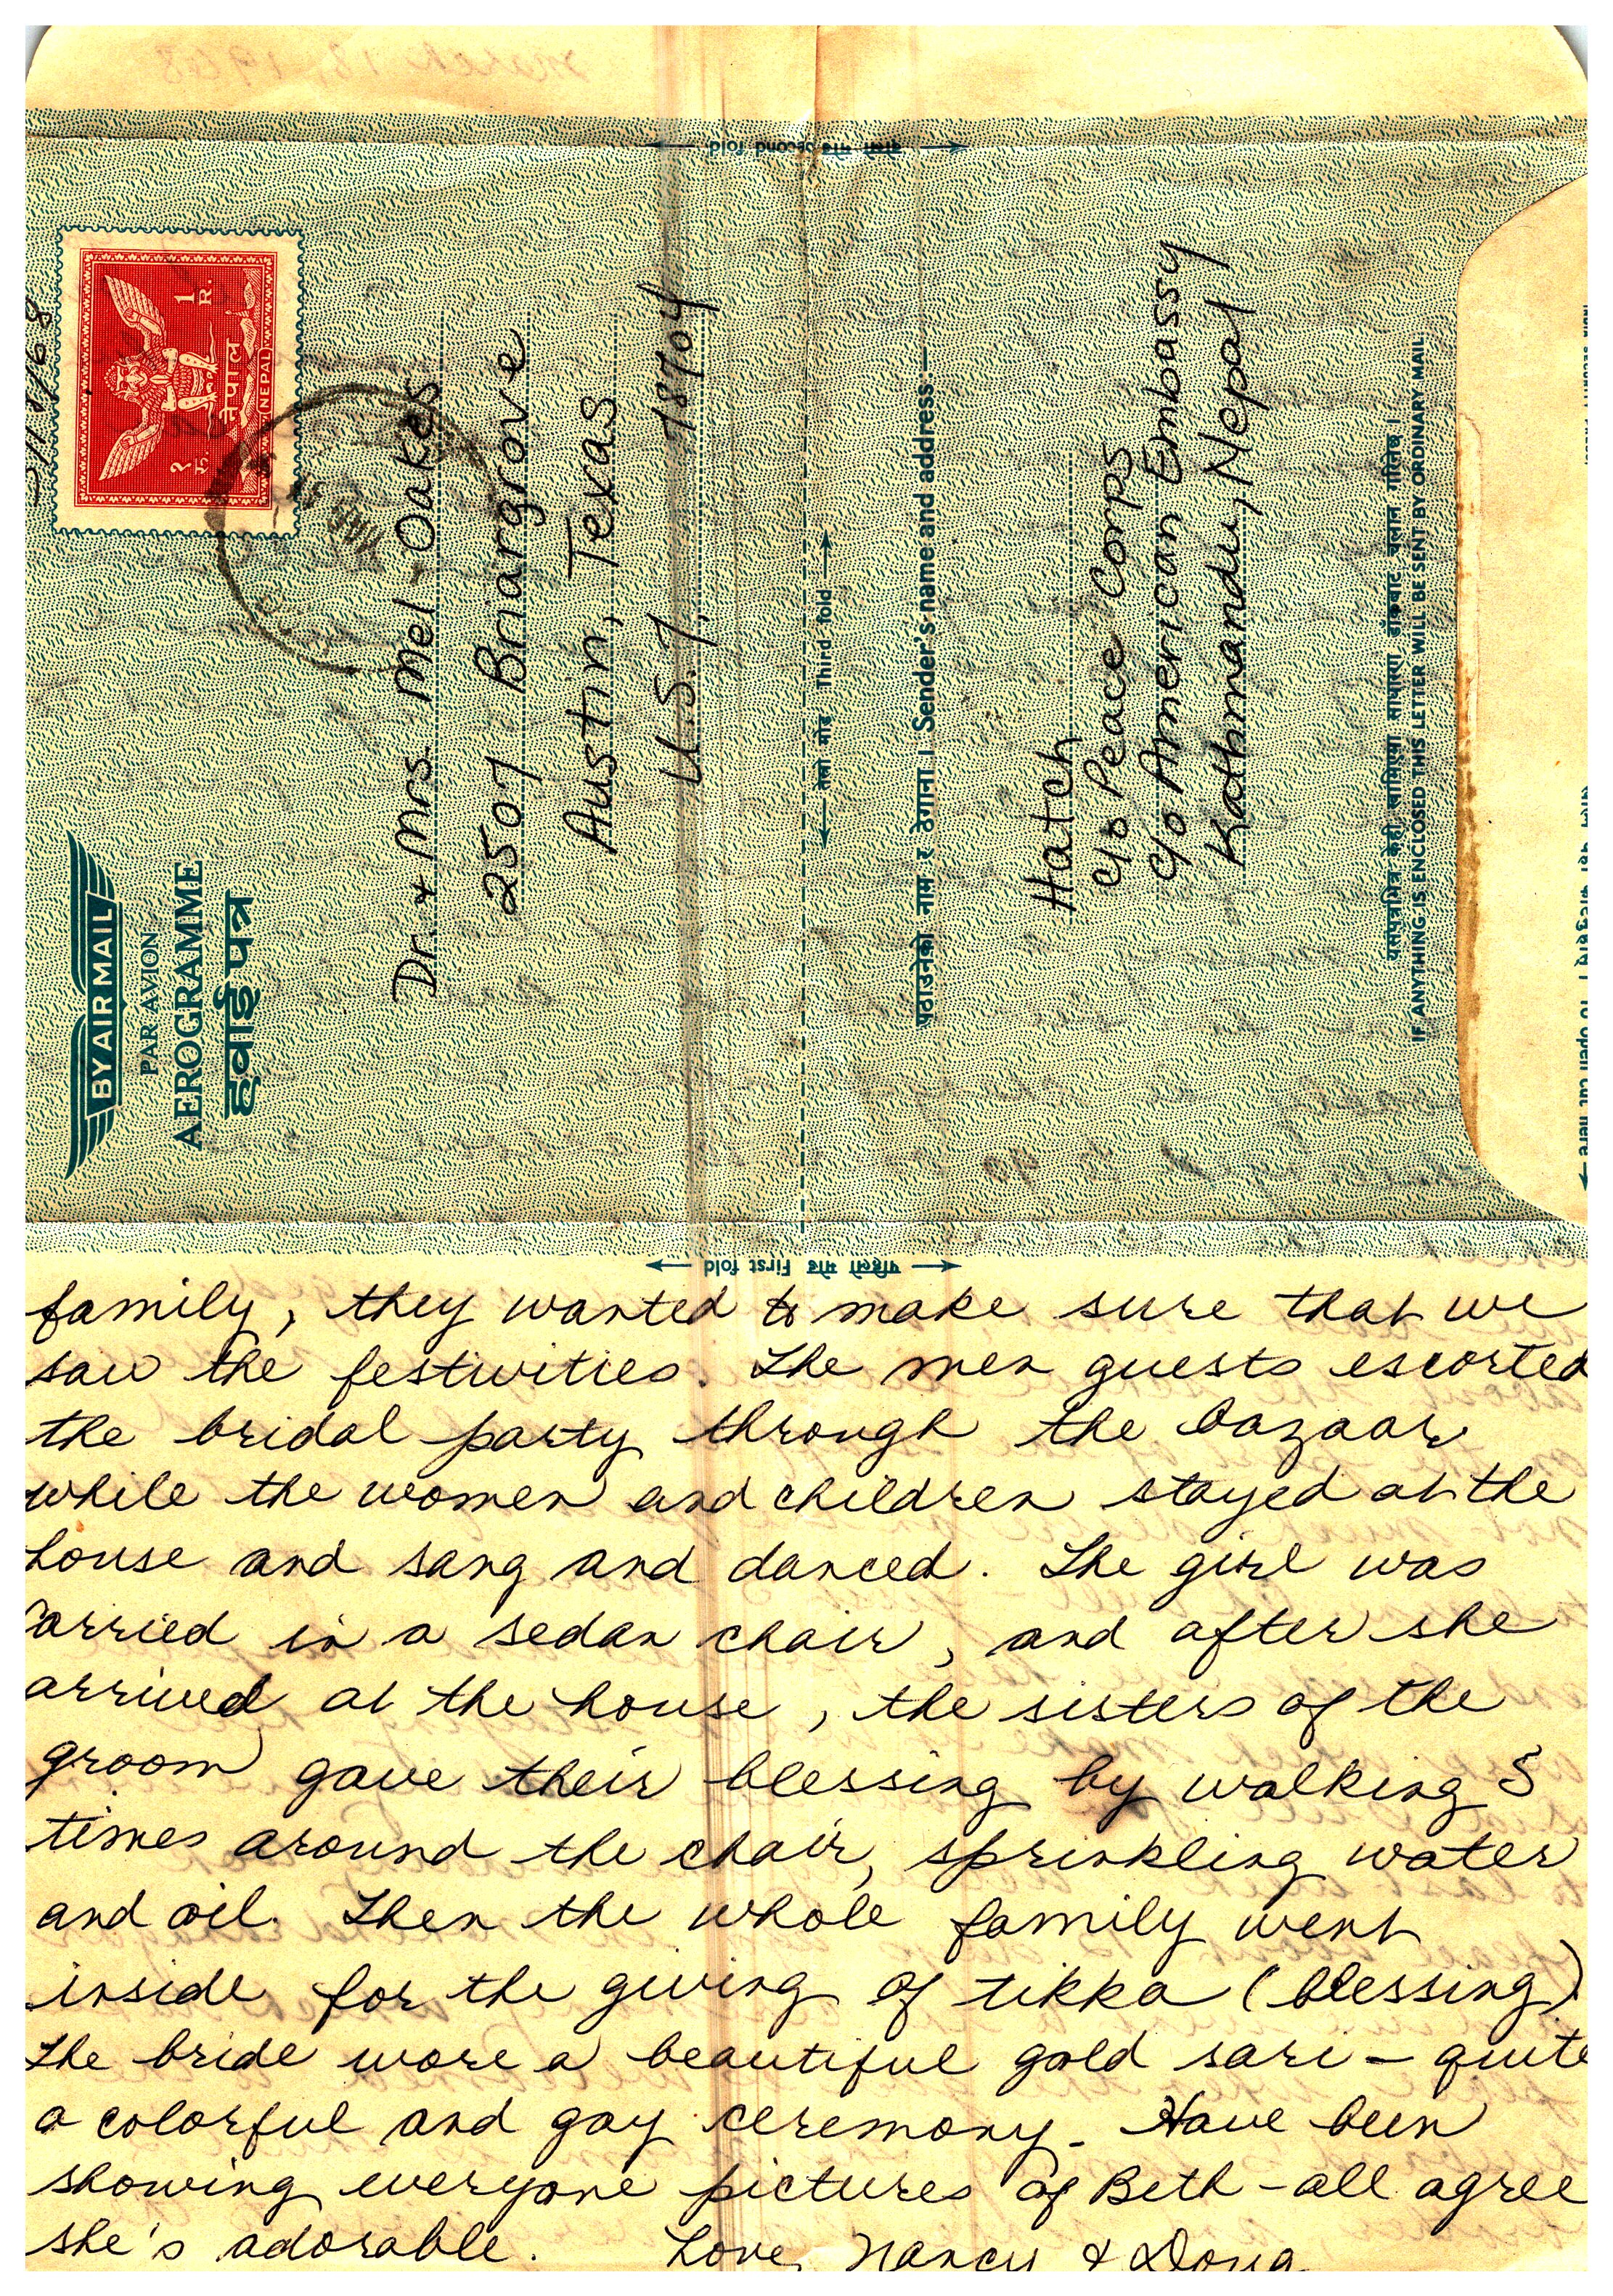 दोस्रो मोड Second fold
3/18/68
१ रु.
1 R.
नेपाल
(NEPAL)
MAR
BY AIR MAIL
PAR AVION
AEROGRAMME
हवाई पत्र
Dr. & Mrs. Mel Oakes
2507 Briargrove
Austin, Texas
U.S.A. 78704
तेस्रो मोड Third fold
पठाउनेको नाम र ठेगाना । Sender's name and address:—
Hatch
c/o Peace Corps
c/o American Embassy
Kathmandu, Nepal
यसपत्रभित्र केही खामिएमा साधारण डाँकबाट चलान गरिनेछ ।
IF ANYTHING IS ENCLOSED THIS LETTER WILL BE SENT BY ORDINARY MAIL
To open cut here
पहिलो मोड First fold
family, they wanted to make sure that we
saw the festivities. The men guests escorted
the bridal party through the bazaar
while the women and children stayed at the
house and sang and danced. The girl was
carried in a sedan chair, and after she
arrived at the house, the sisters of the
groom gave their blessing by walking 5
times around the chair, sprinkling water
and oil. Then the whole family went
inside for the giving of tikka (blessing)
The bride wore a beautiful gold sari - quite
a colorful and gay ceremony. Have been
showing everyone pictures of Beth - all agree
she's adorable. Love, Nancy & Doug